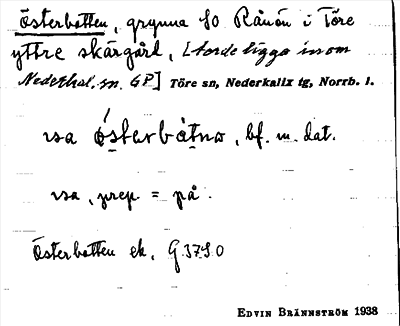 Österbotten, grynna SO Rånön i Töre
yttre skärgård, [torde ligga inom
Nederkal. sn. GP] Töre sn, Nederkalix tg, Norrb. l.
va ǿsterbåtno, bf. m. dat.
va, prep = på.
Österbotten ek. G 3790
EDVIN BRÄNNSTRÖM 1938